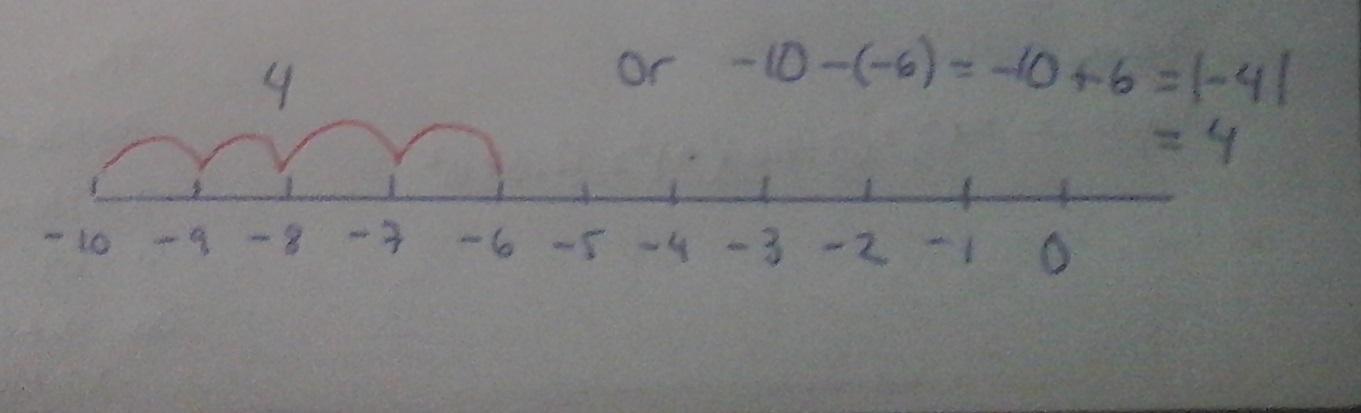 4
or -10-(-6) = -10+6 = |-4|
= 4
-10 -9 -8 -7 -6 -5 -4 -3 -2 -1 0